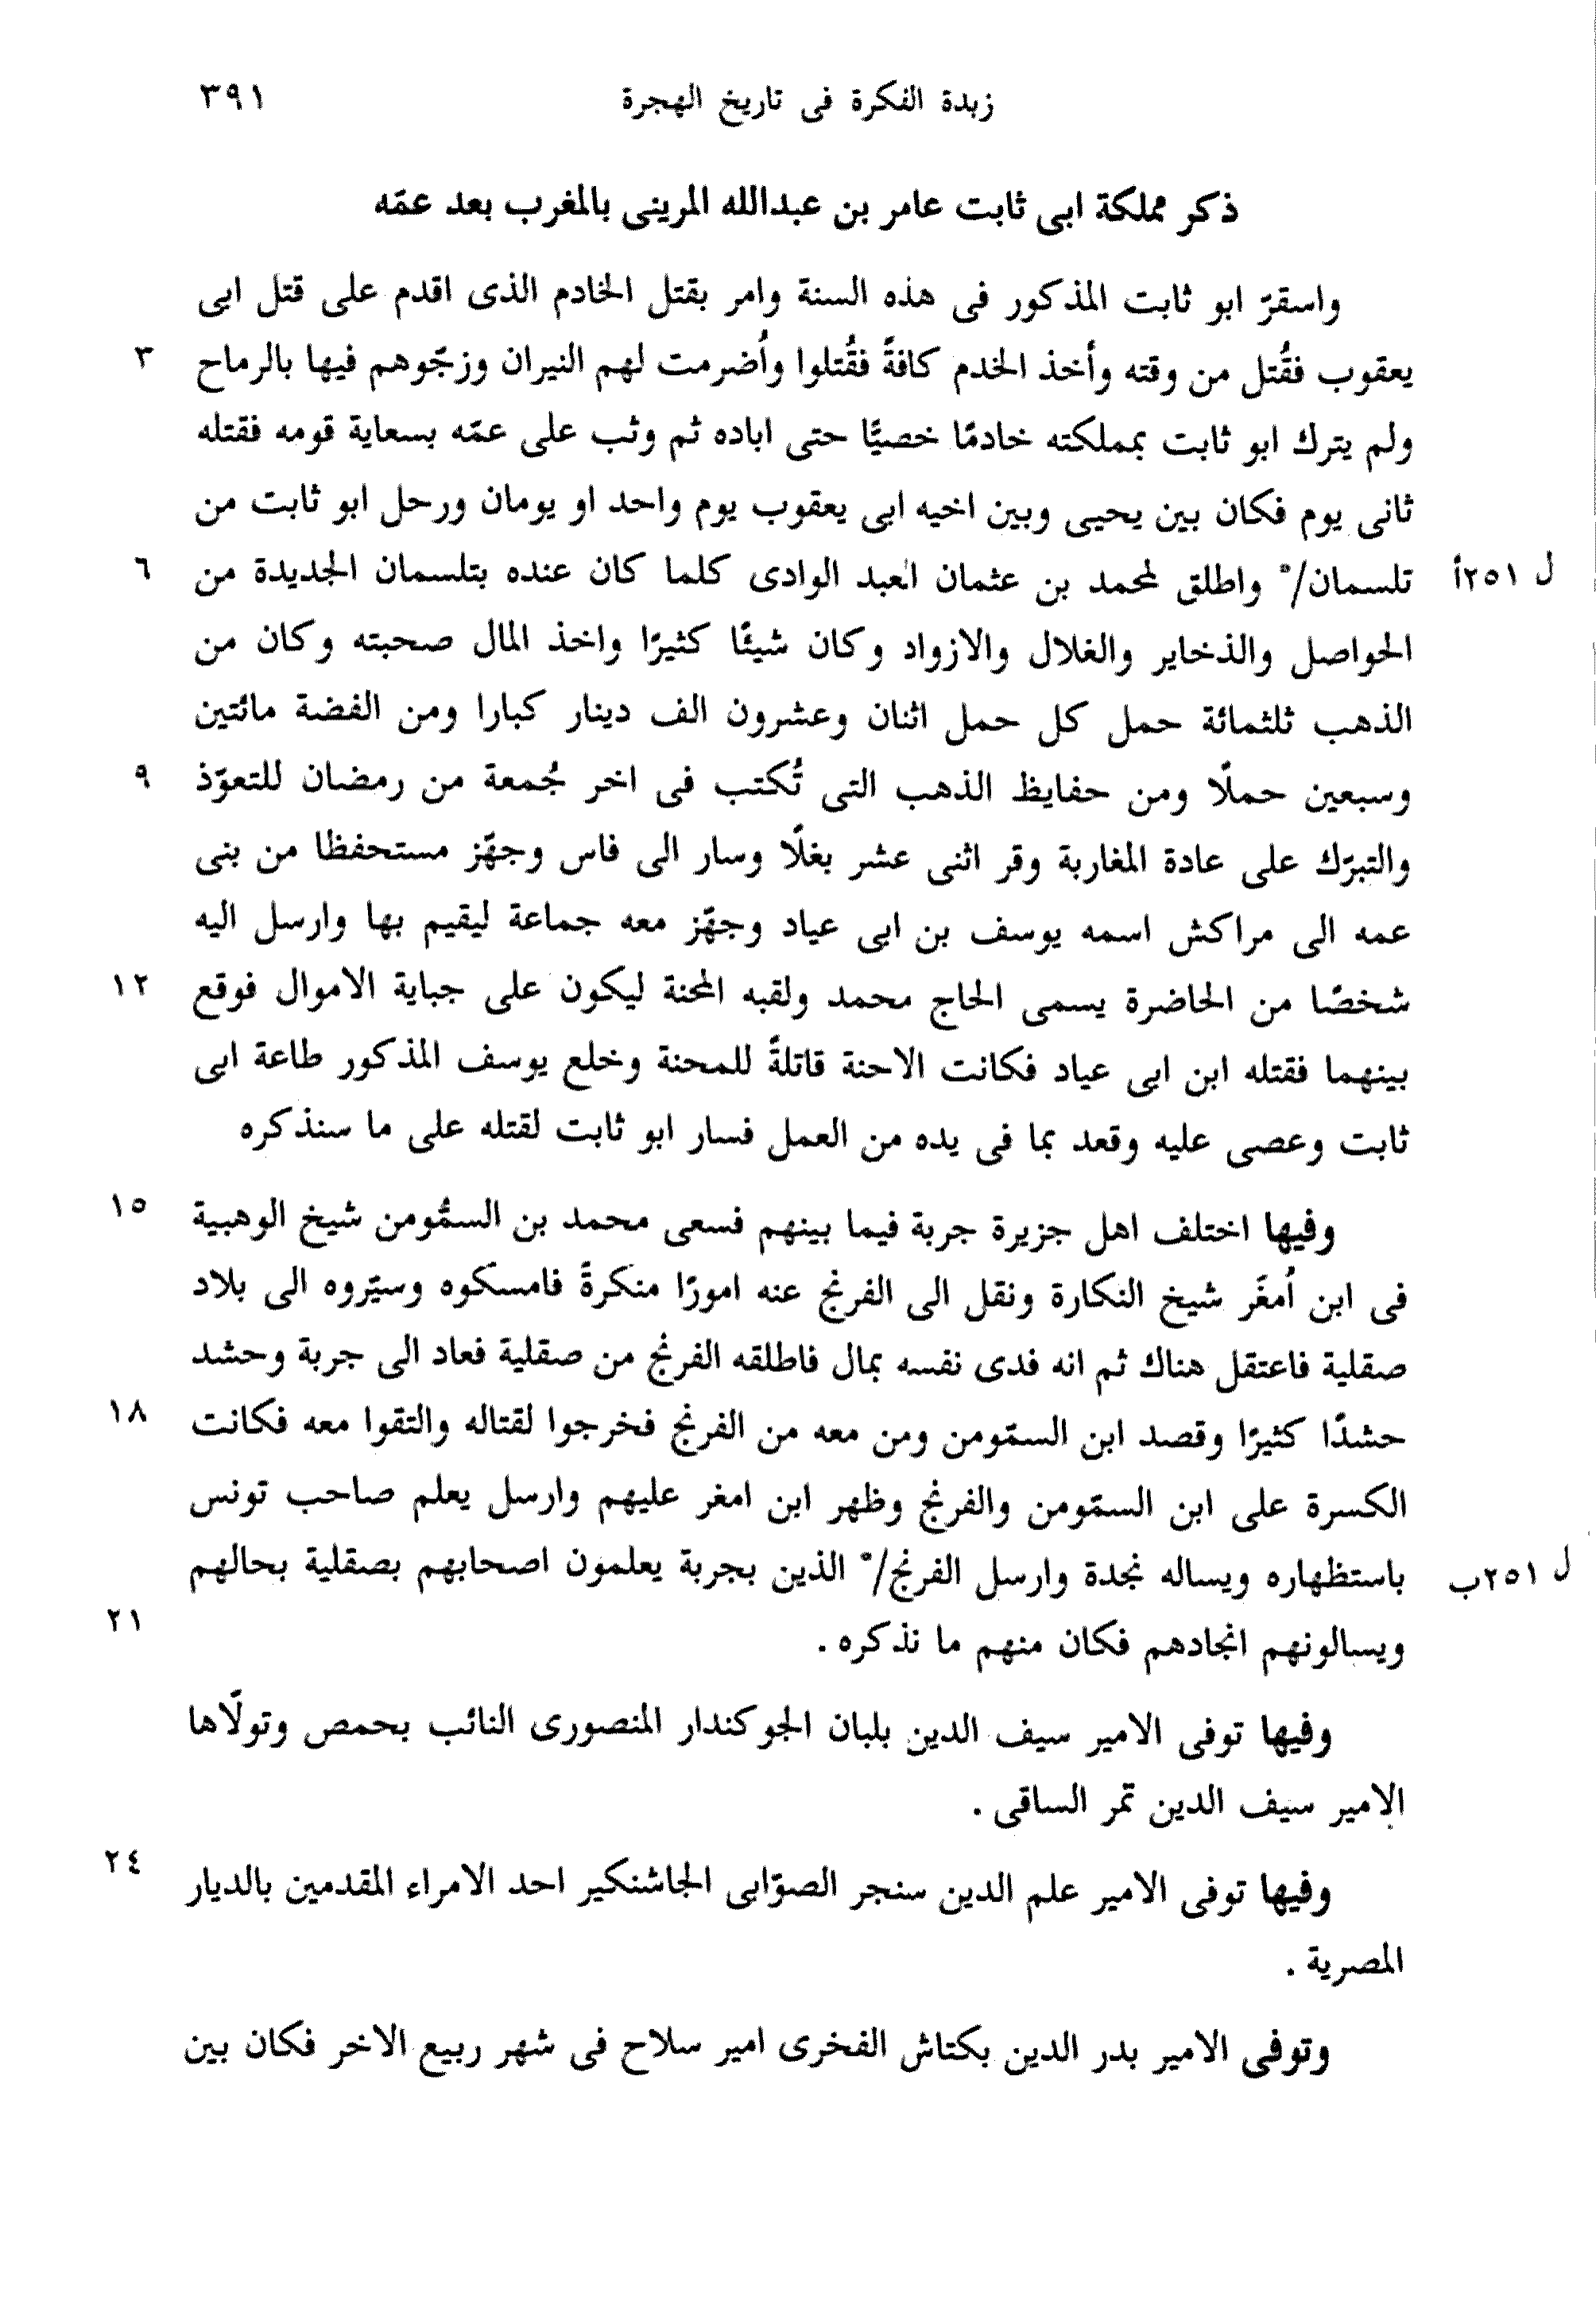 زبدة الفكرة فى تاريخ الهجرة ٣٩١
ذكر مملكة ابى ثابت عامر بن عبدالله المرينى بالمغرب بعد عمّه
واسقرّ ابو ثابت المذكور فى هذه السنة وامر بقتل الخادم الذى اقدم على قتل ابى
يعقوب فقُتل من وقته وأخذ الخدم كافةً فقُتلوا وأُضرمت لهم النيران وزجّوهم فيها بالرماح ٣
ولم يترك ابو ثابت بمملكته خادمًا خصيًّا حتى اباده ثم وثب على عمّه بسعاية قومه فقتله
ثانى يوم فكان بين يحيى وبين اخيه ابى يعقوب يوم واحد او يومان ورحل ابو ثابت من
ل ٢٥١أ تلسمان/° واطلق لمحمد بن عثمان العبد الوادى كلما كان عنده بتلسمان الجديدة من ٦
الحواصل والذخاير والغلال والازواد وكان شيئًا كثيرًا واخذ المال صحبته وكان من
الذهب ثلثمائة حمل كل حمل اثنان وعشرون الف دينار كبارا ومن الفضة مائتين
وسبعين حملًا ومن حفايظ الذهب التى تُكتب فى اخر جُمعة من رمضان للتعوّذ ٩
والتبرّك على عادة المغاربة وقر اثنى عشر بغلًا وسار الى فاس وجهّز مستحفظا من بنى
عمه الى مراكش اسمه يوسف بن ابى عياد وجهّز معه جماعة ليقيم بها وارسل اليه
شخصًا من الحاضرة يسمى الحاج محمد ولقبه المحنة ليكون على جباية الاموال فوقع ١٢
بينهما فقتله ابن ابى عياد فكانت الاحنة قاتلةً للمحنة وخلع يوسف المذكور طاعة ابى
ثابت وعصى عليه وقعد بما فى يده من العمل فسار ابو ثابت لقتله على ما سنذكره
وفيها اختلف اهل جزيرة جربة فيما بينهم فسعى محمد بن السمُّومن شيخ الوهبية ١٥
فى ابن اُمغَر شيخ النكارة ونقل الى الفرنج عنه امورًا منكرةً فامسكوه وسيّروه الى بلاد
صقلية فاعتقل هناك ثم انه فدى نفسه بمال فاطلقه الفرنج من صقلية فعاد الى جربة وحشد
حشدًا كثيرًا وقصد ابن السمّومن ومن معه من الفرنج فخرجوا لقتاله والتقوا معه فكانت ١٨
الكسرة على ابن السمّومن والفرنج وظهر ابن امغر عليهم وارسل يعلم صاحب تونس
ل ٢٥١ب باستظهاره ويساله نجدة وارسل الفرنج/° الذين بجربة يعلمون اصحابهم بصقلية بحالهم
ويسالونهم انجادهم فكان منهم ما نذكره . ٢١
وفيها توفى الامير سيف الدين بلبان الجوكندار المنصورى النائب بحمص وتولّاها
الامير سيف الدين تمر الساقى .
وفيها توفى الامير علم الدين سنجر الصوّابى الجاشنكير احد الامراء المقدمين بالديار ٢٤
المصرية .
وتوفى الامير بدر الدين بكتاش الفخرى امير سلاح فى شهر ربيع الاخر فكان بين